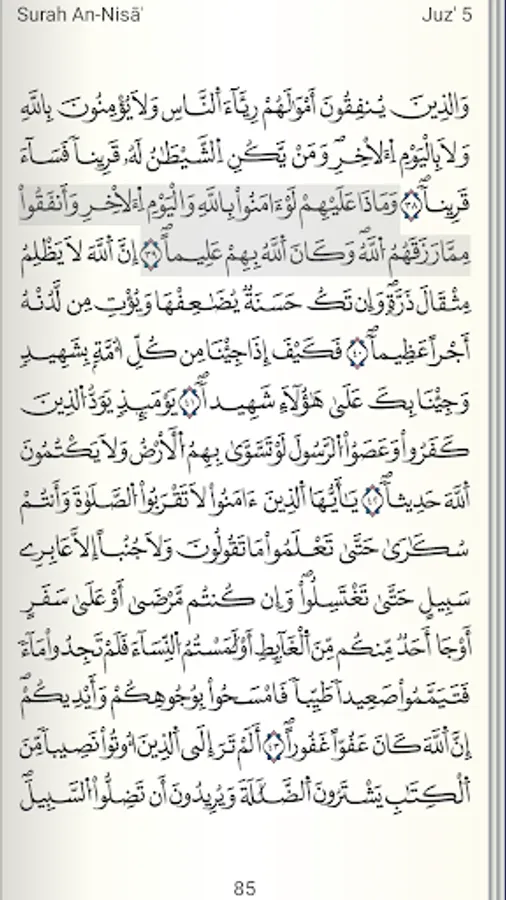 Surah An-Nisā'
Juz' 5
وَالَّذِينَ يُنفِقُونَ أَمْوَٰلَهُمْ رِئَآءَ ٱلنَّاسِ وَلَا يُؤْمِنُونَ بِاللَّهِ
وَلَا بِالْيَوْمِ اِ۬لَاخِرِۖ وَمَنْ يَّكُنِ ٱلشَّيْطَٰنُ لَهُۥ قَرِيناٗ فَسَآءَ
قَرِيناٗۖ ٣٨ وَمَاذَا عَلَيْهِمْ لَوَ اٰمَنُواْ بِاللَّهِ وَالْيَوْمِ اِ۬لَاخِرِ وَأَنفَقُواْ
مِمَّا رَزَقَهُمُ اُ۬للَّهُۖ وَكَانَ اَ۬للَّهُ بِهِمْ عَلِيماًۖ ٣٩ إِنَّ اَ۬للَّهَ لَا يَظْلِمُ
مِثْقَالَ ذَرَّةٖۖ وَإِن تَكُ حَسَنَةٞ يُضَٰعِفْهَا وَيُؤْتِ مِن لَّدُنْهُ
أَجْراً عَظِيماٗۖ ٤٠ فَكَيْفَ إِذَا جِئْنَا مِن كُلِّ أُمَّةِۢ بِشَهِيدٖ
وَجِئْنَا بِكَ عَلَىٰ هَٰٓؤُلَآءِ شَهِيداٗۖ ٤١ يَوْمَئِذٖ يَوَدُّ اُ۬لذِينَ
كَفَرُواْ وَعَصَوُاْ اُ۬لرَّسُولَ لَوْ تَسَّوَّىٰ بِهِمُ اُ۬لَارْضُ وَلَا يَكْتُمُونَ
اَ۬للَّهَ حَدِيثاٗۖ ٤٢ يَٰٓأَيُّهَا اَ۬لذِينَ ءَامَنُواْ لَا تَقْرَبُواْ اُ۬لصَّلَوٰةَ وَأَنتُمْ
سُكَٰرَىٰ حَتَّىٰ تَعْلَمُواْ مَا تَقُولُونَ وَلَا جُنُباً إِلَّا عَابِرِے
سَبِيلٍ حَتَّىٰ تَغْتَسِلُواْۖ وَإِن كُنتُم مَّرْضَىٰٓ أَوْ عَلَىٰ سَفَرٍ
أَوْ جَا أَحَدٞ مِّنكُم مِّنَ اَ۬لْغَآئِطِ أَوْ لَٰمَسْتُمُ اُ۬لنِّسَآءَ فَلَمْ تَجِدُواْ مَآءٗ
فَتَيَمَّمُواْ صَعِيداٗ طَيِّباٗ فَامْسَحُواْ بِوُجُوهِكُمْ وَأَيْدِيكُمْۖ
إِنَّ اَ۬للَّهَ كَانَ عَفُوّاً غَفُوراًۖ ٤٣ أَلَمْ تَرَ إِلَى اَ۬لذِينَ أُوتُواْ نَصِيباٗ مِّنَ
اَ۬لْكِتَٰبِ يَشْتَرُونَ اَ۬لضَّلَٰلَةَ وَيُرِيدُونَ أَن تَضِلُّواْ اُ۬لسَّبِيلَۖ
85